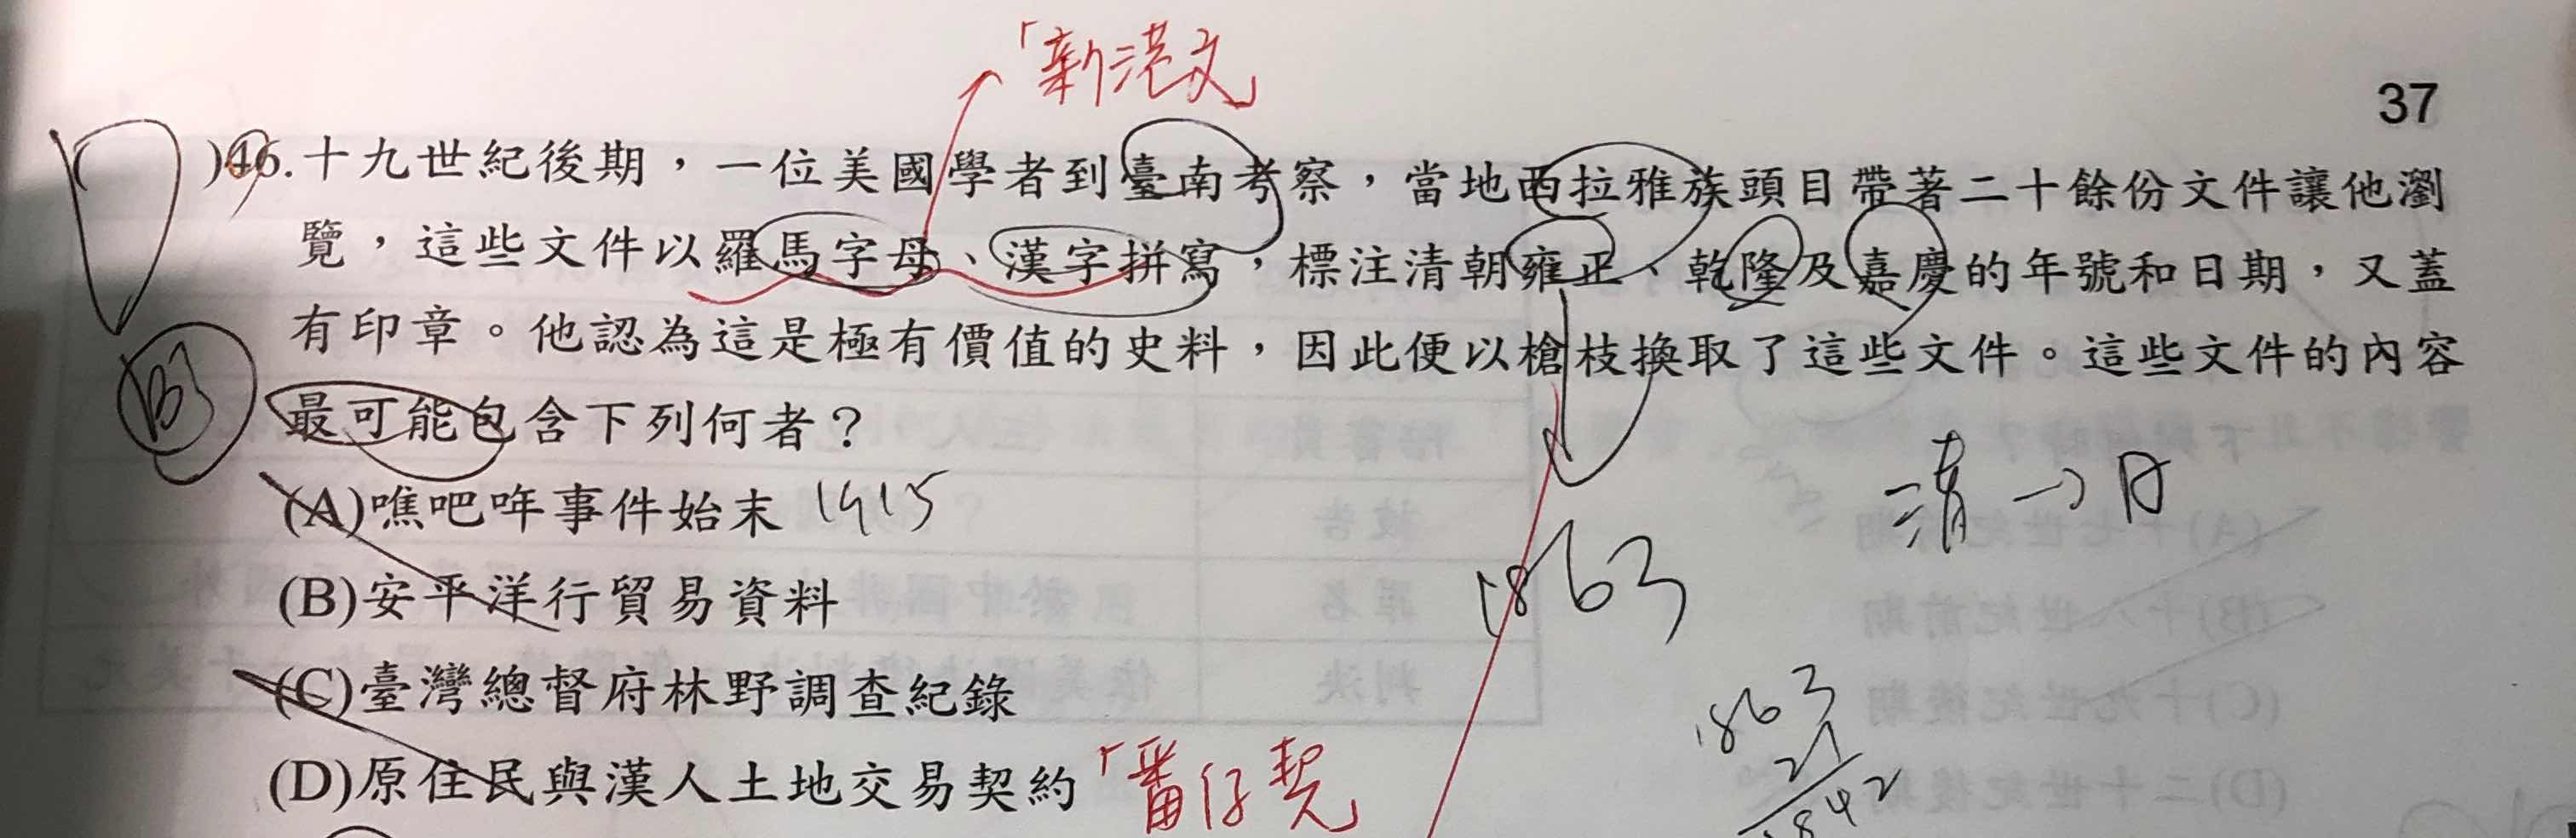 「新港文」
37
D
)46.十九世紀後期，一位美國學者到臺南考察，當地西拉雅族頭目帶著二十餘份文件讓他瀏
覽，這些文件以羅馬字母、漢字拼寫，標注清朝雍正、乾隆及嘉慶的年號和日期，又蓋
有印章。他認為這是極有價值的史料，因此便以槍枝換取了這些文件。這些文件的內容
B
最可能包含下列何者？
(A)噍吧哖事件始末 1915
清→日
(B)安平洋行貿易資料
1863
(C)臺灣總督府林野調查紀錄
1863
21
1842
(D)原住民與漢人土地交易契約「番仔契」